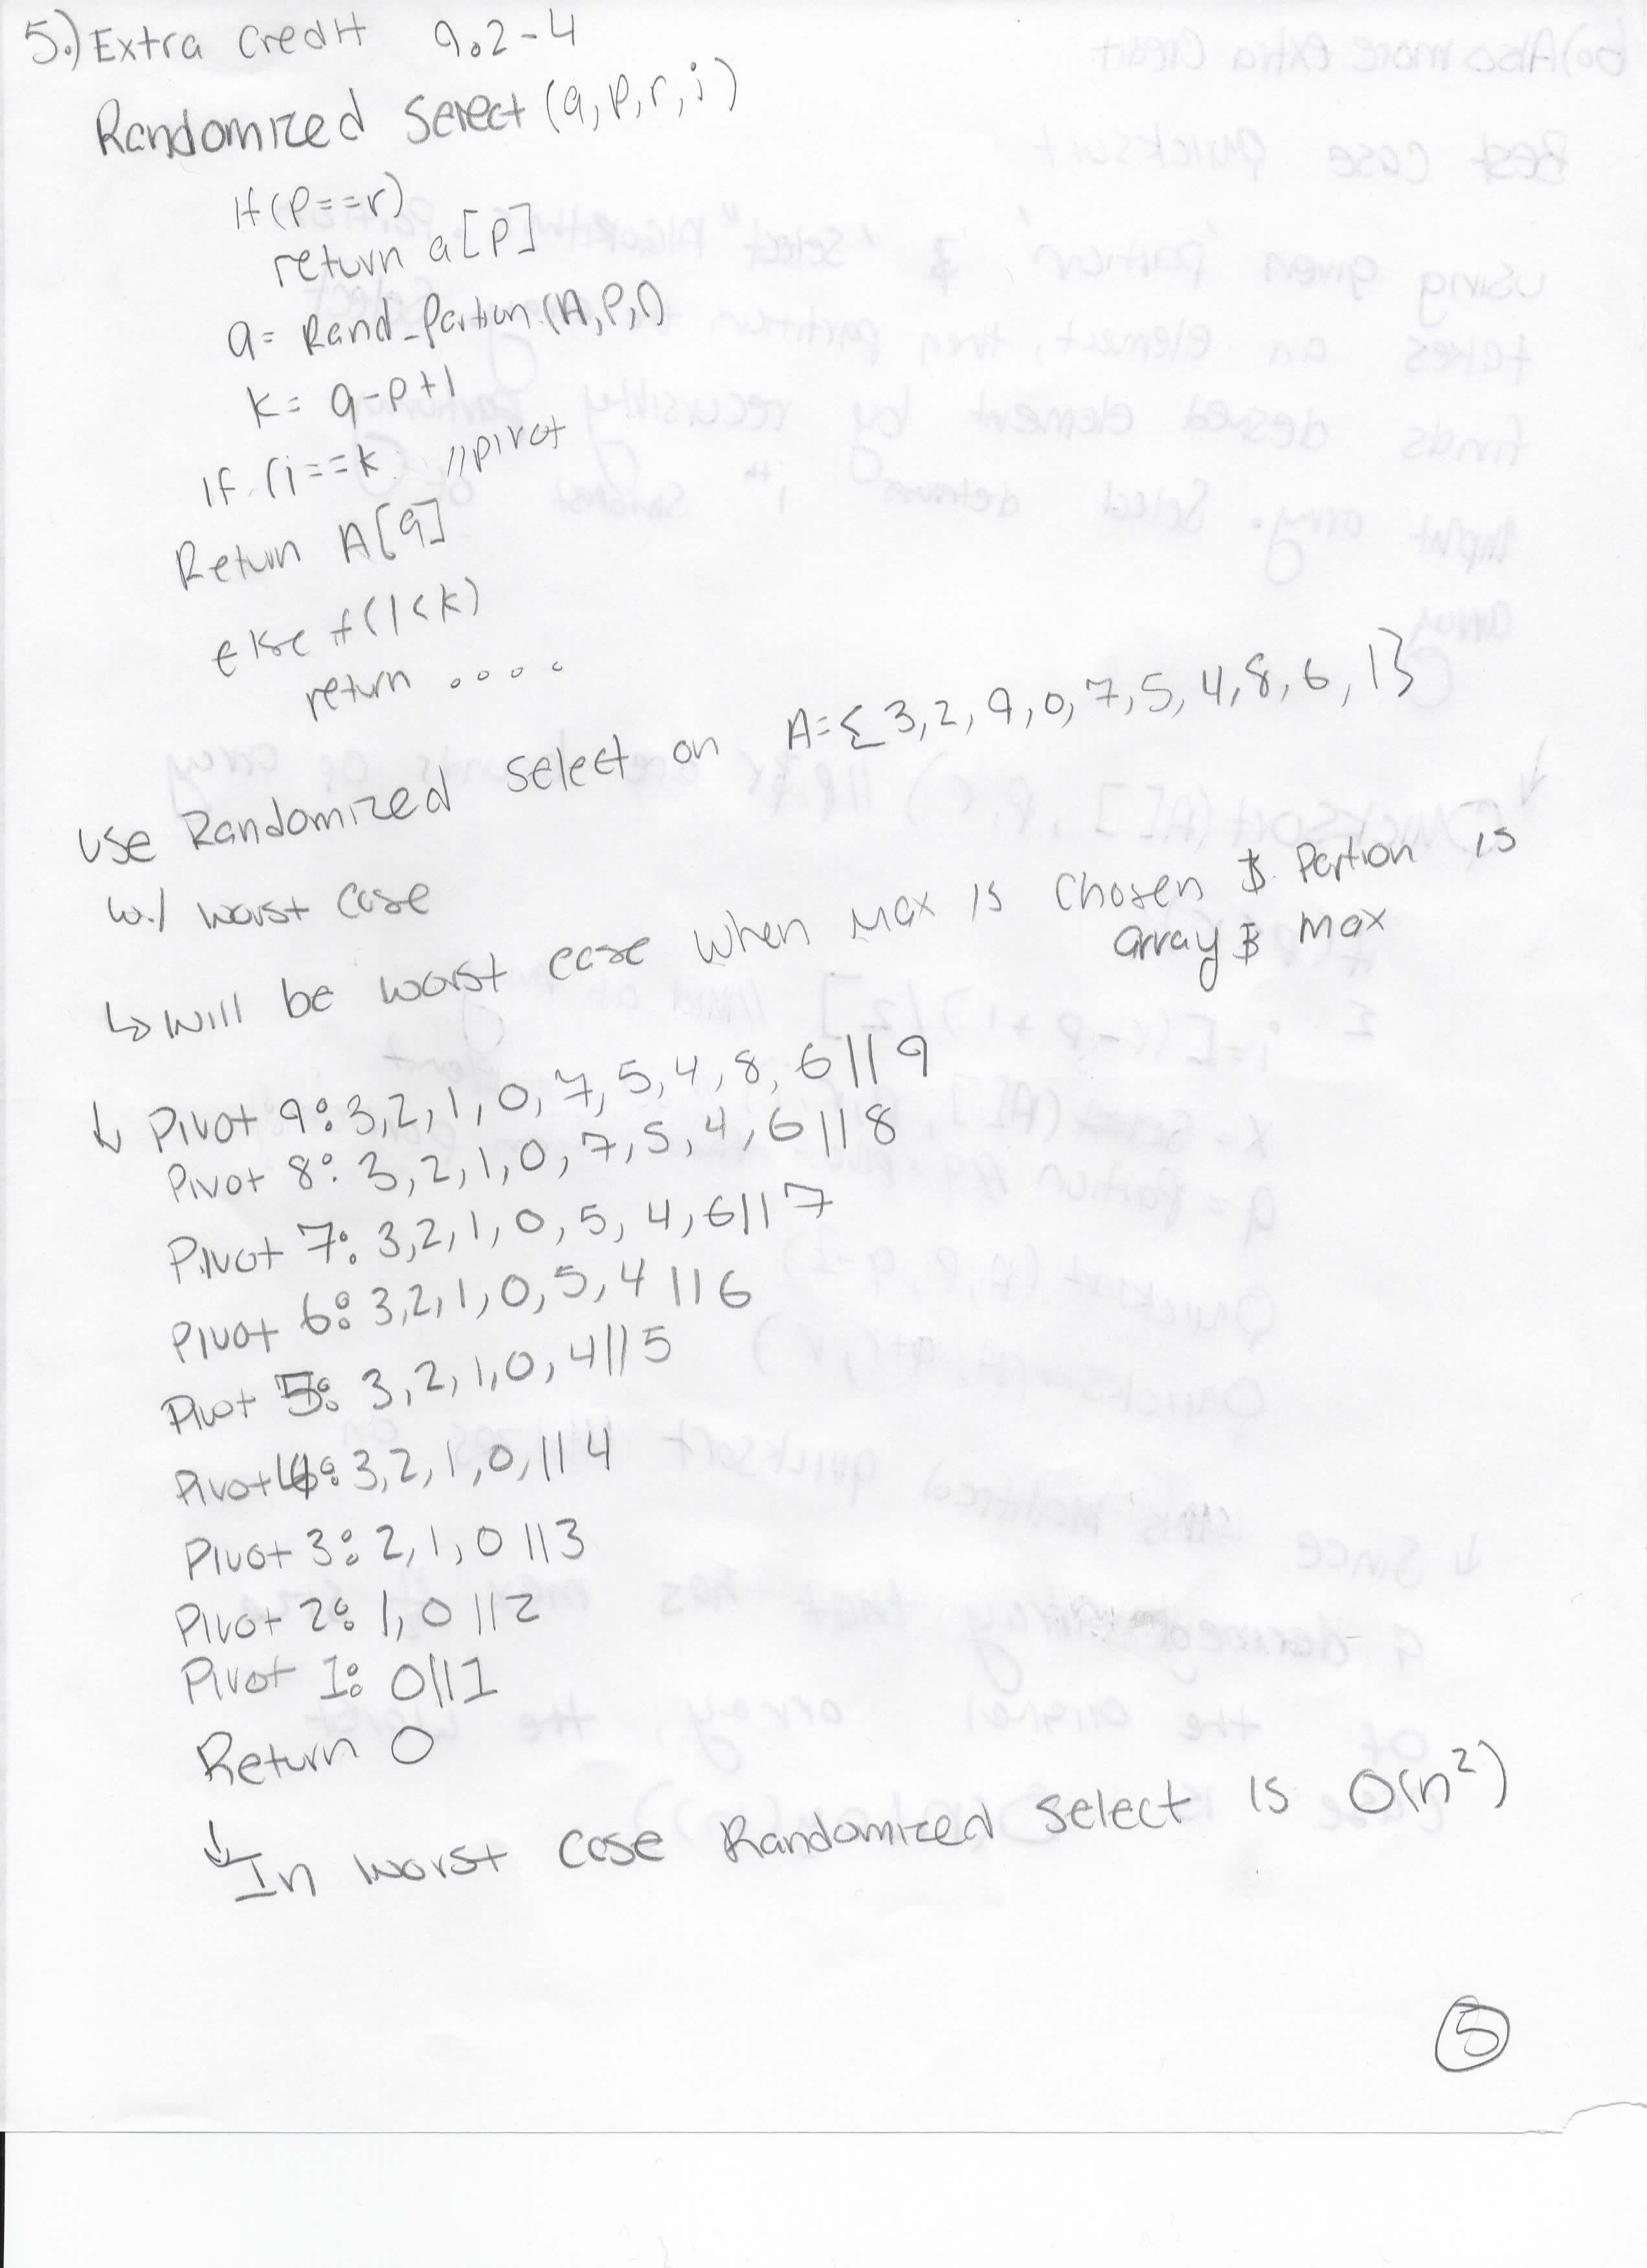 5.) Extra Credit 9.2-4
Randomized Select (a, p, r, i)
If (p==r)
return a[p]
q = Rand_Partion (A, P, r)
k = q-p+1
If (i==k //pivot
Return A[q]
else if (i<k)
return ....
Use Randomized select on A={3,2,9,0,7,5,4,8,6,1}
w./ worst case
↳ will be worst case when max is chosen & Partion is array & max
↓ Pivot 9: 3,2,1,0,7,5,4,8,6||9
Pivot 8: 3,2,1,0,7,5,4,6||8
Pivot 7: 3,2,1,0,5,4,6||7
Pivot 6: 3,2,1,0,5,4||6
Pivot 5: 3,2,1,0,4||5
Pivot 4: 3,2,1,0,||4
Pivot 3: 2,1,0||3
Pivot 2: 1,0||2
Pivot 1: 0||1
Return 0
↳ In worst case Randomized select is O(n²)
5